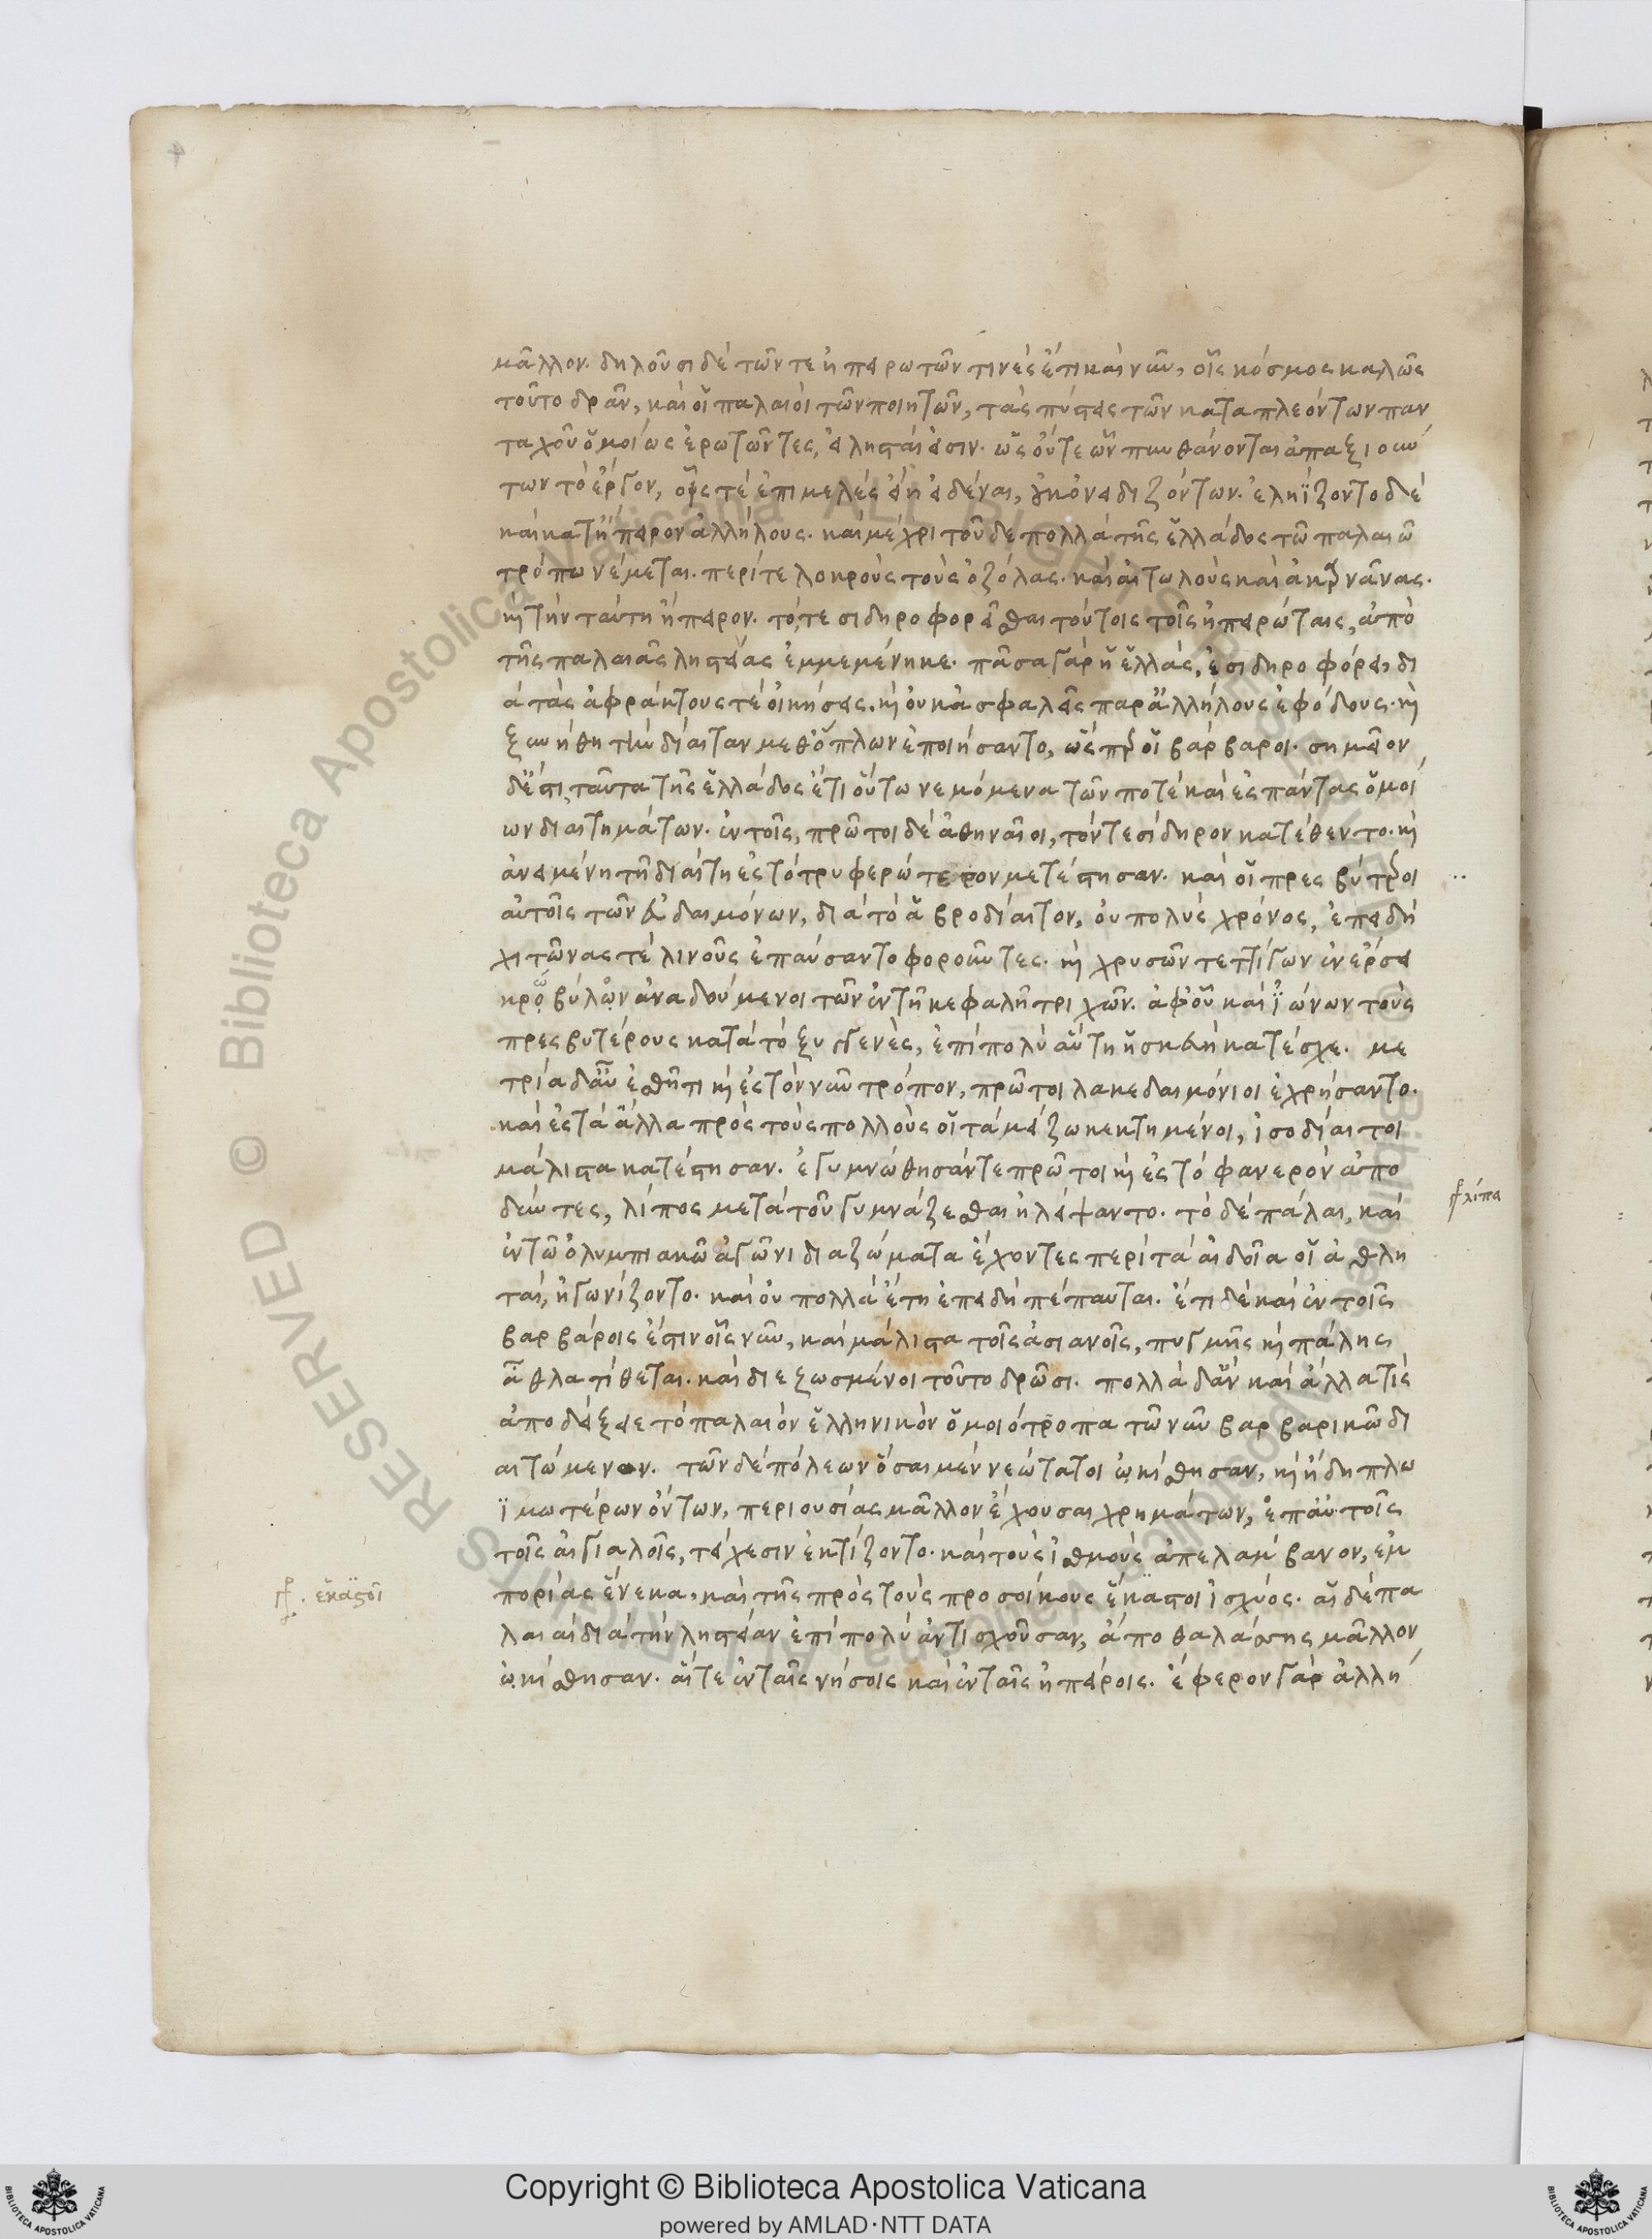 μᾶλλον. δηλοῦσι δὲ τῶν τε ἠπειρωτῶν τινὲς ἔτι καὶ νῦν, οἷς κόσμος καλῶς
τοῦτο δρᾶν, καὶ οἱ παλαιοὶ τῶν ποιητῶν, τὰς πύστεις τῶν καταπλεόντων παν
ταχοῦ ὁμοίως ἐρωτῶντες, εἰ λησταί εἰσιν. ὡς οὔτε ὧν πυνθάνονται ἀπαξιούν
των τὸ ἔργον, οἷς τὲ ἐπιμελὲς εἴη εἰδέναι, οὐκ ὀνειδιζόντων. ἐληΐζοντο δὲ
καὶ κατ' ἤπειρον ἀλλήλους. καὶ μέχρι τοῦδε πολλὰ τῆς ἑλλάδος τῶ παλαιῶ
τρόπω νέμεται. περί τε λοκροὺς τοὺς ὀζόλας. καὶ αἰτωλοὺς καὶ ἀκαρνᾶνας.
καὶ τὴν ταύτη ἤπειρον. τό, τε σιδηροφορεῖσθαι τούτοις τοῖς ἠπειρώταις, ἀπὸ
τῆς παλαιᾶς ληστείας ἐμμεμένηκε. πᾶσα γὰρ ἡ ἑλλὰς, ἐσιδηροφόρει, δι
ὰ τὰς ἀφράκτους τὲ οἰκήσεις. καὶ οὐκ ἀσφαλεῖς παρ' ἀλλήλους ἐφόδους. καὶ
ξυνήθη τὴν δίαιταν μεθ' ὅπλων ἐποιήσαντο, ὥσπερ οἱ βάρβαροι. σημεῖον
δ' ἐστὶ, ταῦτα τῆς ἑλλάδος ἔτι οὕτω νεμόμενα τῶν ποτὲ καὶ ἐς πάντας ὁμοί
ων διαιτημάτων. ἐν τοῖς, πρῶτοι δὲ ἀθηναῖοι, τόν τε σίδηρον κατέθεντο. καὶ
ἀνειμένη τῆ διαίτη ἐς τὸ τρυφερώτερον μετέστησαν. καὶ οἱ πρεσβύτεροι
αὐτοῖς τῶν εὐδαιμόνων, διὰ τὸ ἁβροδίαιτον, οὐ πολὺς χρόνος, ἐπειδὴ
χιτῶνας τὲ λινοῦς ἐπαύσαντο φοροῦντες. καὶ χρυσῶν τεττίγων ἐν ἔρσει
κρωβύλων ἀναδούμενοι τῶν ἐν τῆ κεφαλῆ τριχῶν. ἀφ' οὗ καὶ ἰώνων τοὺς
πρεσβυτέρους κατὰ τὸ ξυγγενὲς, ἐπὶ πολὺ αὕτη ἡ σκευὴ κατέσχε. με
τρία δ' αὖ ἐσθῆτι καὶ ἐς τὸν νῦν τρόπον, πρῶτοι λακεδαιμόνιοι ἐχρήσαντο.
καὶ ἐς τὰ ἄλλα πρὸς τοὺς πολλοὺς οἱ τὰ μείζω κεκτημένοι, ἰσοδίαιτοι
μάλιστα κατέστησαν. ἐγυμνώθησάν τε πρῶτοι καὶ ἐς τὸ φανερὸν ἀπο
δύντες, λίπος μετὰ τοῦ γυμνάζεσθαι ἠλείψαντο. τὸ δὲ πάλαι, καὶ
γρ λίπα
ἐν τῶ ὀλυμπιακῶ ἀγῶνι διαζώματα ἔχοντες περὶ τὰ αἰδοῖα οἱ ἀθλη
ταὶ, ἠγωνίζοντο. καὶ οὐ πολλὰ ἔτη ἐπειδὴ πέπαυται. ἔτι δὲ καὶ ἐν τοῖς
βαρβάροις ἔστιν οἷς νῦν, καὶ μάλιστα τοῖς ἀσιανοῖς, πυγμῆς καὶ πάλης
ἆθλα τίθεται. καὶ διεζωσμένοι τοῦτο δρῶσι. πολλὰ δ' ἂν καὶ ἄλλα τὶς
ἀποδείξειε τὸ παλαιὸν ἑλληνικὸν ὁμοιότροπα τῶ νῦν βαρβαρικῶ δι
αιτώμενον. τῶν δὲ πόλεων ὅσαι μὲν νεώτατοι ὠκίσθησαν, καὶ ἤδη πλω
ϊμωτέρων ὄντων, περιουσίας μᾶλλον ἔχουσαι χρημάτων, ἐπ' αὐτοῖς
τοῖς αἰγιαλοῖς, τείχεσιν ἐκτίζοντο. καὶ τοὺς ἰσθμοὺς ἀπελάμβανον, ἐμ
πορίας ἕνεκα, καὶ τῆς πρὸς τοὺς προσοίκους ἕκαστοι ἰσχύος. αἱ δὲ πα
γρ. ἕκαστοι
λαιαὶ διὰ τὴν ληστείαν ἐπὶ πολὺ ἀντισχοῦσαι, ἀπὸ θαλάσσης μᾶλλον
ὠκίσθησαν. αἵ τε ἐν ταῖς νήσοις καὶ ἐν ταῖς ἠπείροις. ἔφερον γὰρ ἀλλή
Copyright © Biblioteca Apostolica Vaticana
powered by AMLAD·NTT DATA